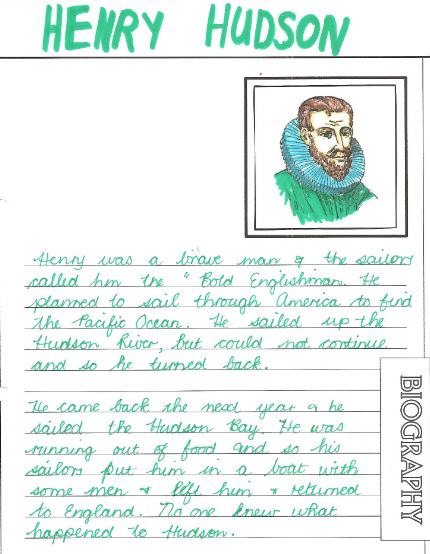 HENRY HUDSON
Henry was a brave man & the sailors
called him the "Bold Englishman. He
planned to sail through America to find
the Pacific Ocean. He sailed up the
Hudson River, but could not continue
and so he turned back.
He came back the next year & he
sailed the Hudson Bay. He was
running out of food and so his
sailors put him in a boat with
some men & left him & returned
to England. No one knew what
happened to Hudson.
BIOGRAPHY